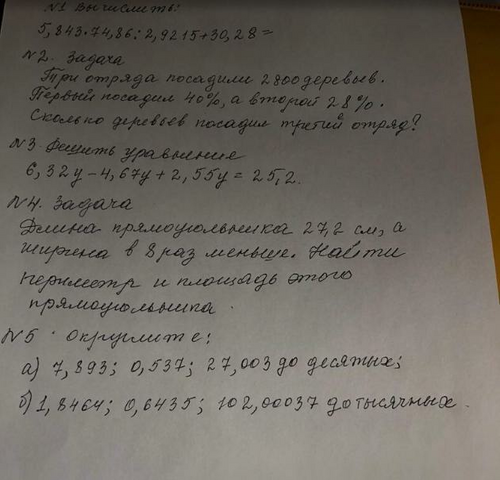 N1 Вычислить:
5,843·74,86:2,9215+30,28=
N2. Задача
Три отряда посадили 2800 деревьев.
Первый посадил 40%, а второй 28%.
Сколько деревьев посадил третий отряд?
N3 Решить уравнение
6,32у-4,67у+2,55у=25,2.
N4. Задача
Длина прямоугольника 27,2 см, а
ширина в 8 раз меньше. Найти
периметр и площадь этого
прямоугольника.
N5 Округлите:
а) 7,893; 0,537; 27,003 до десятых;
б) 1,8464; 0,6435; 102,00037 до тысячных.